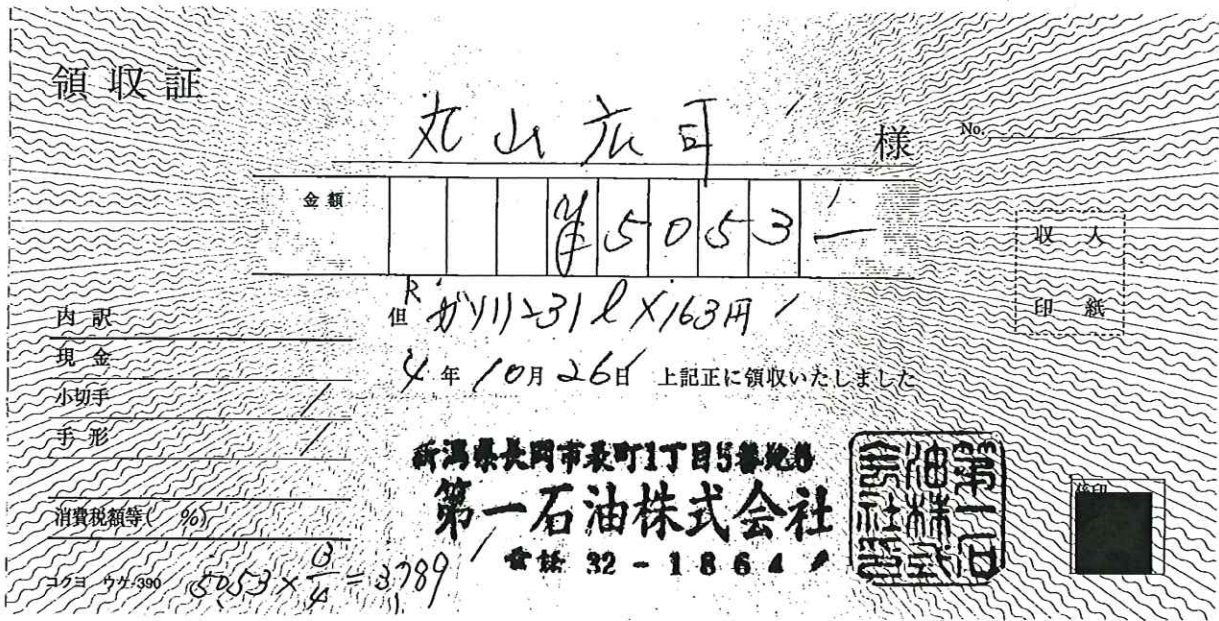 領収証
丸山広司 様 No.
金額 ¥5053-
収入
印紙
但 R ガソリン31ℓ×163円
内訳
現金
4年10月26日 上記正に領収いたしました
小切手
手形
新潟県長岡市表町1丁目5番地
第一石油株式会社
電話 32-1864
第一石油株式会社印
係印
消費税額等( %)
コクヨ ウケ-390
5053×3/4=3789